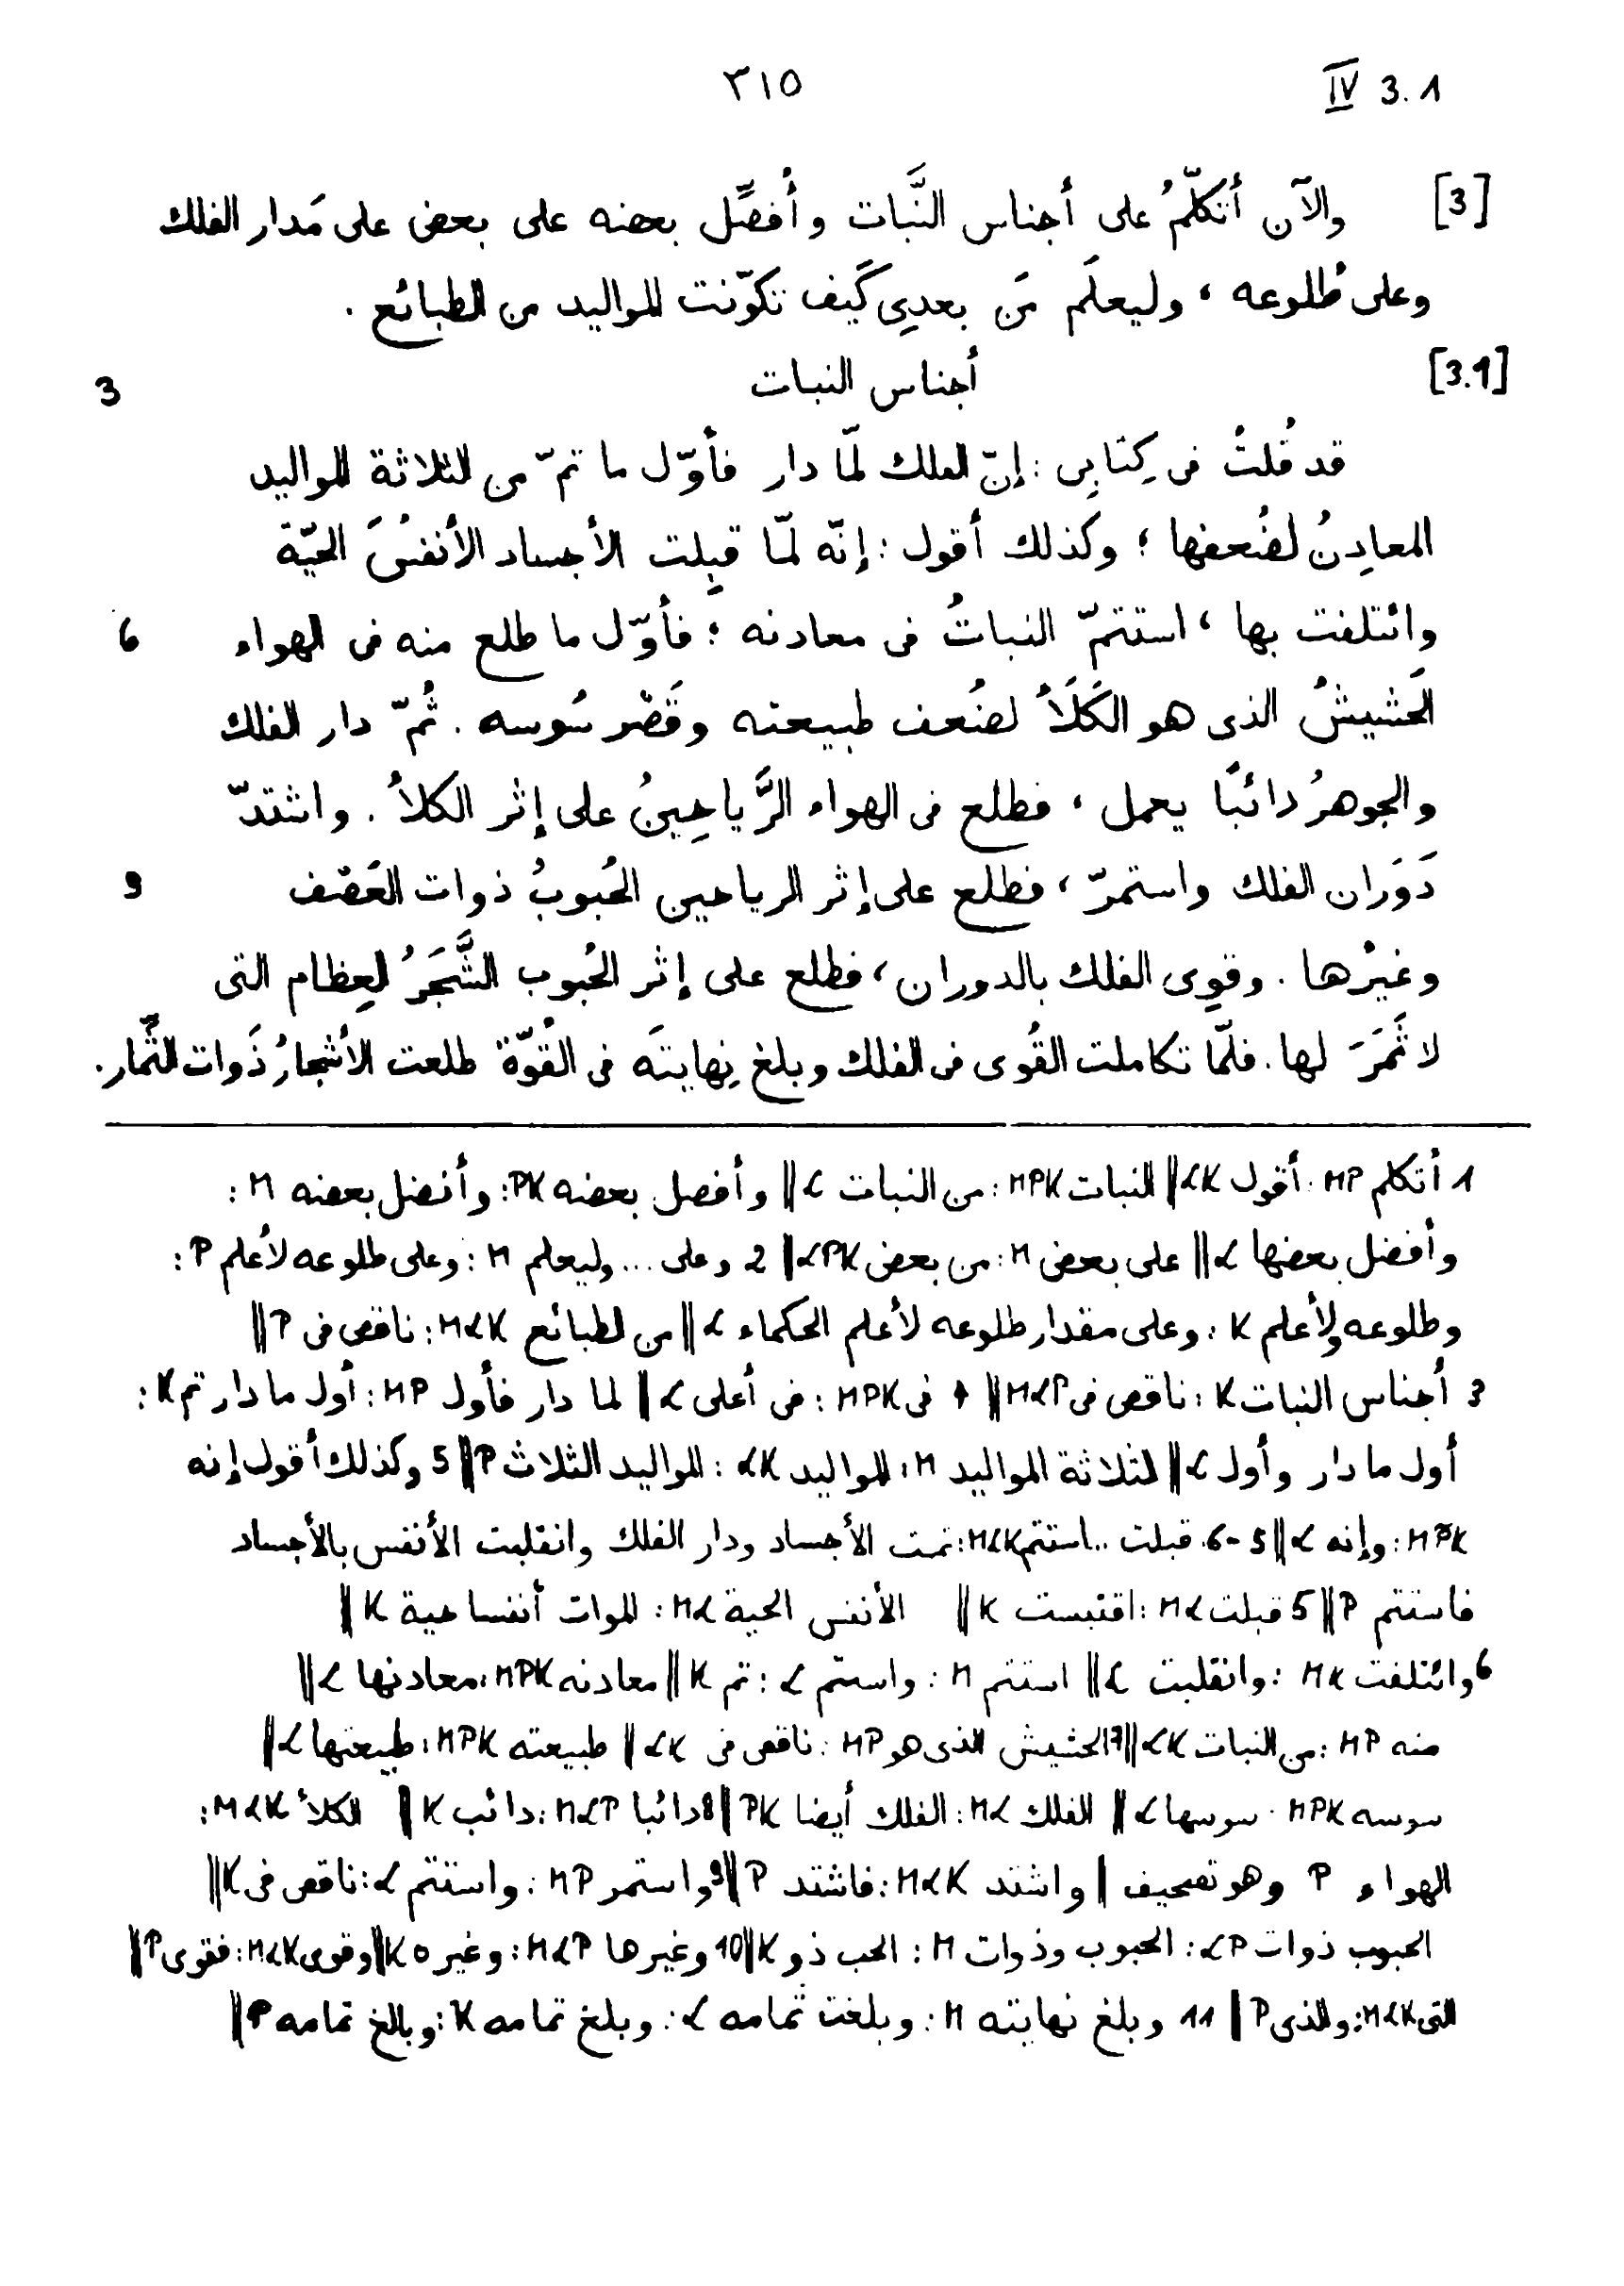 ٣١٥ IV 3.1
[3] والآن أتكلّمُ على أجناس النَّبات وأُفضِّل بعضه على بعض على مَدار الفلك
وعلى طُلوعه ، وليعلَم مَن بعدِى كَيف تكوّنت المواليد من الطبائع .
[3.1] أجناس النبات 3
قد قُلتُ فى كِتابِى : إنّ الفلك لمّا دار فأوّل ما تمّ من الثلاثة المواليد
المعادِنُ لضُعفها ؛ وكذلك أقول : إنّه لمّا قبِلت الأجساد الأنفسَ الحيّة
وائتلفت بها ، استتمّ النباتُ فى معادنه ؛ فأوّل ما طلع منه فى الهواء 6
الحَشيشُ الذى هو الكَلَأُ لضُعف طبيعته وقَصْر سُوسه . ثُمّ دار الفلك
والجوهرُ دائبًا يعمل ، فطلع فى الهواء الرَّياحِينُ على إثر الكلأ . واشتدّ
دَوَران الفلك واستمرّ ، فطلع على إثر الرياحين الحُبوبُ ذوات العَصْف 9
وغيرُها . وقوِى الفلك بالدوران ، فطلع على إثر الحُبوب الشَّجَرُ العِظام التى
لا ثَمَرَ لها . فلمّا تكاملت القُوى فى الفلك وبلغ نِهايتَه فى القُوّة طلعت الأشجارُ ذَوات الثِّمار .
1 أتكلم MP : أقول LK || النبات MPK : من النبات L || وأفصل بعضه PK : وأفضل بعضه M :
وأفضل بعضها L || على بعض M : من بعض LPK || 2 وعلى ... وليعلم M : وعلى طلوعه لأعلم P :
وطلوعه ولأعلم K : وعلى مقدار طلوعه لأعلم الحكماء L || من الطبائع MLK : ناقص فى P ||
3 أجناس النبات K : ناقص فى MLP || 4 فى MPK : فى أعلى L || لما دار فأول MP : أول ما دار تم K :
أول ما دار وأول L || الثلاثة المواليد M : المواليد LK : المواليد الثلاث P || 5 وكذلك أقول إنه
MPK : وإنه L || 5-6 قبلت .. استتم MLK : تمت الأجساد ودار الفلك وانقلبت الأنفس بالأجساد
فاستتم P || 5 قبلت ML : اقتبست K || الأنفس الحية ML : الموات أنفسا حية K ||
6 وائتلفت MK : وانقلبت L || استتم M : واستتم L : تم K || معادنه MPK : معادنها L ||
منه MP : من النبات LK || 7 الحشيش الذى هو MP : ناقص فى LK || طبيعته MPK : طبيعتها L ||
سوسه MPK : سوسها L || الفلك ML : الفلك أيضا PK || 8 دائبا MLP : دائب K || الكلأ MLK :
الهواء P وهو تصحيف || واشتد MLK : فاشتد P || 9 واستمر MP : واستتم L : ناقص فى K ||
الحبوب ذوات LP : الحبوب وذوات M : الحب ذو K || 10 وغيرها MLP : وغيره K || وقوى MLK : فقوى P ||
التى MLK : والذى P || 11 وبلغ نهايته M : وبلغت تمامه L : وبلغ تمامه K : وبالغ تمامه P ||